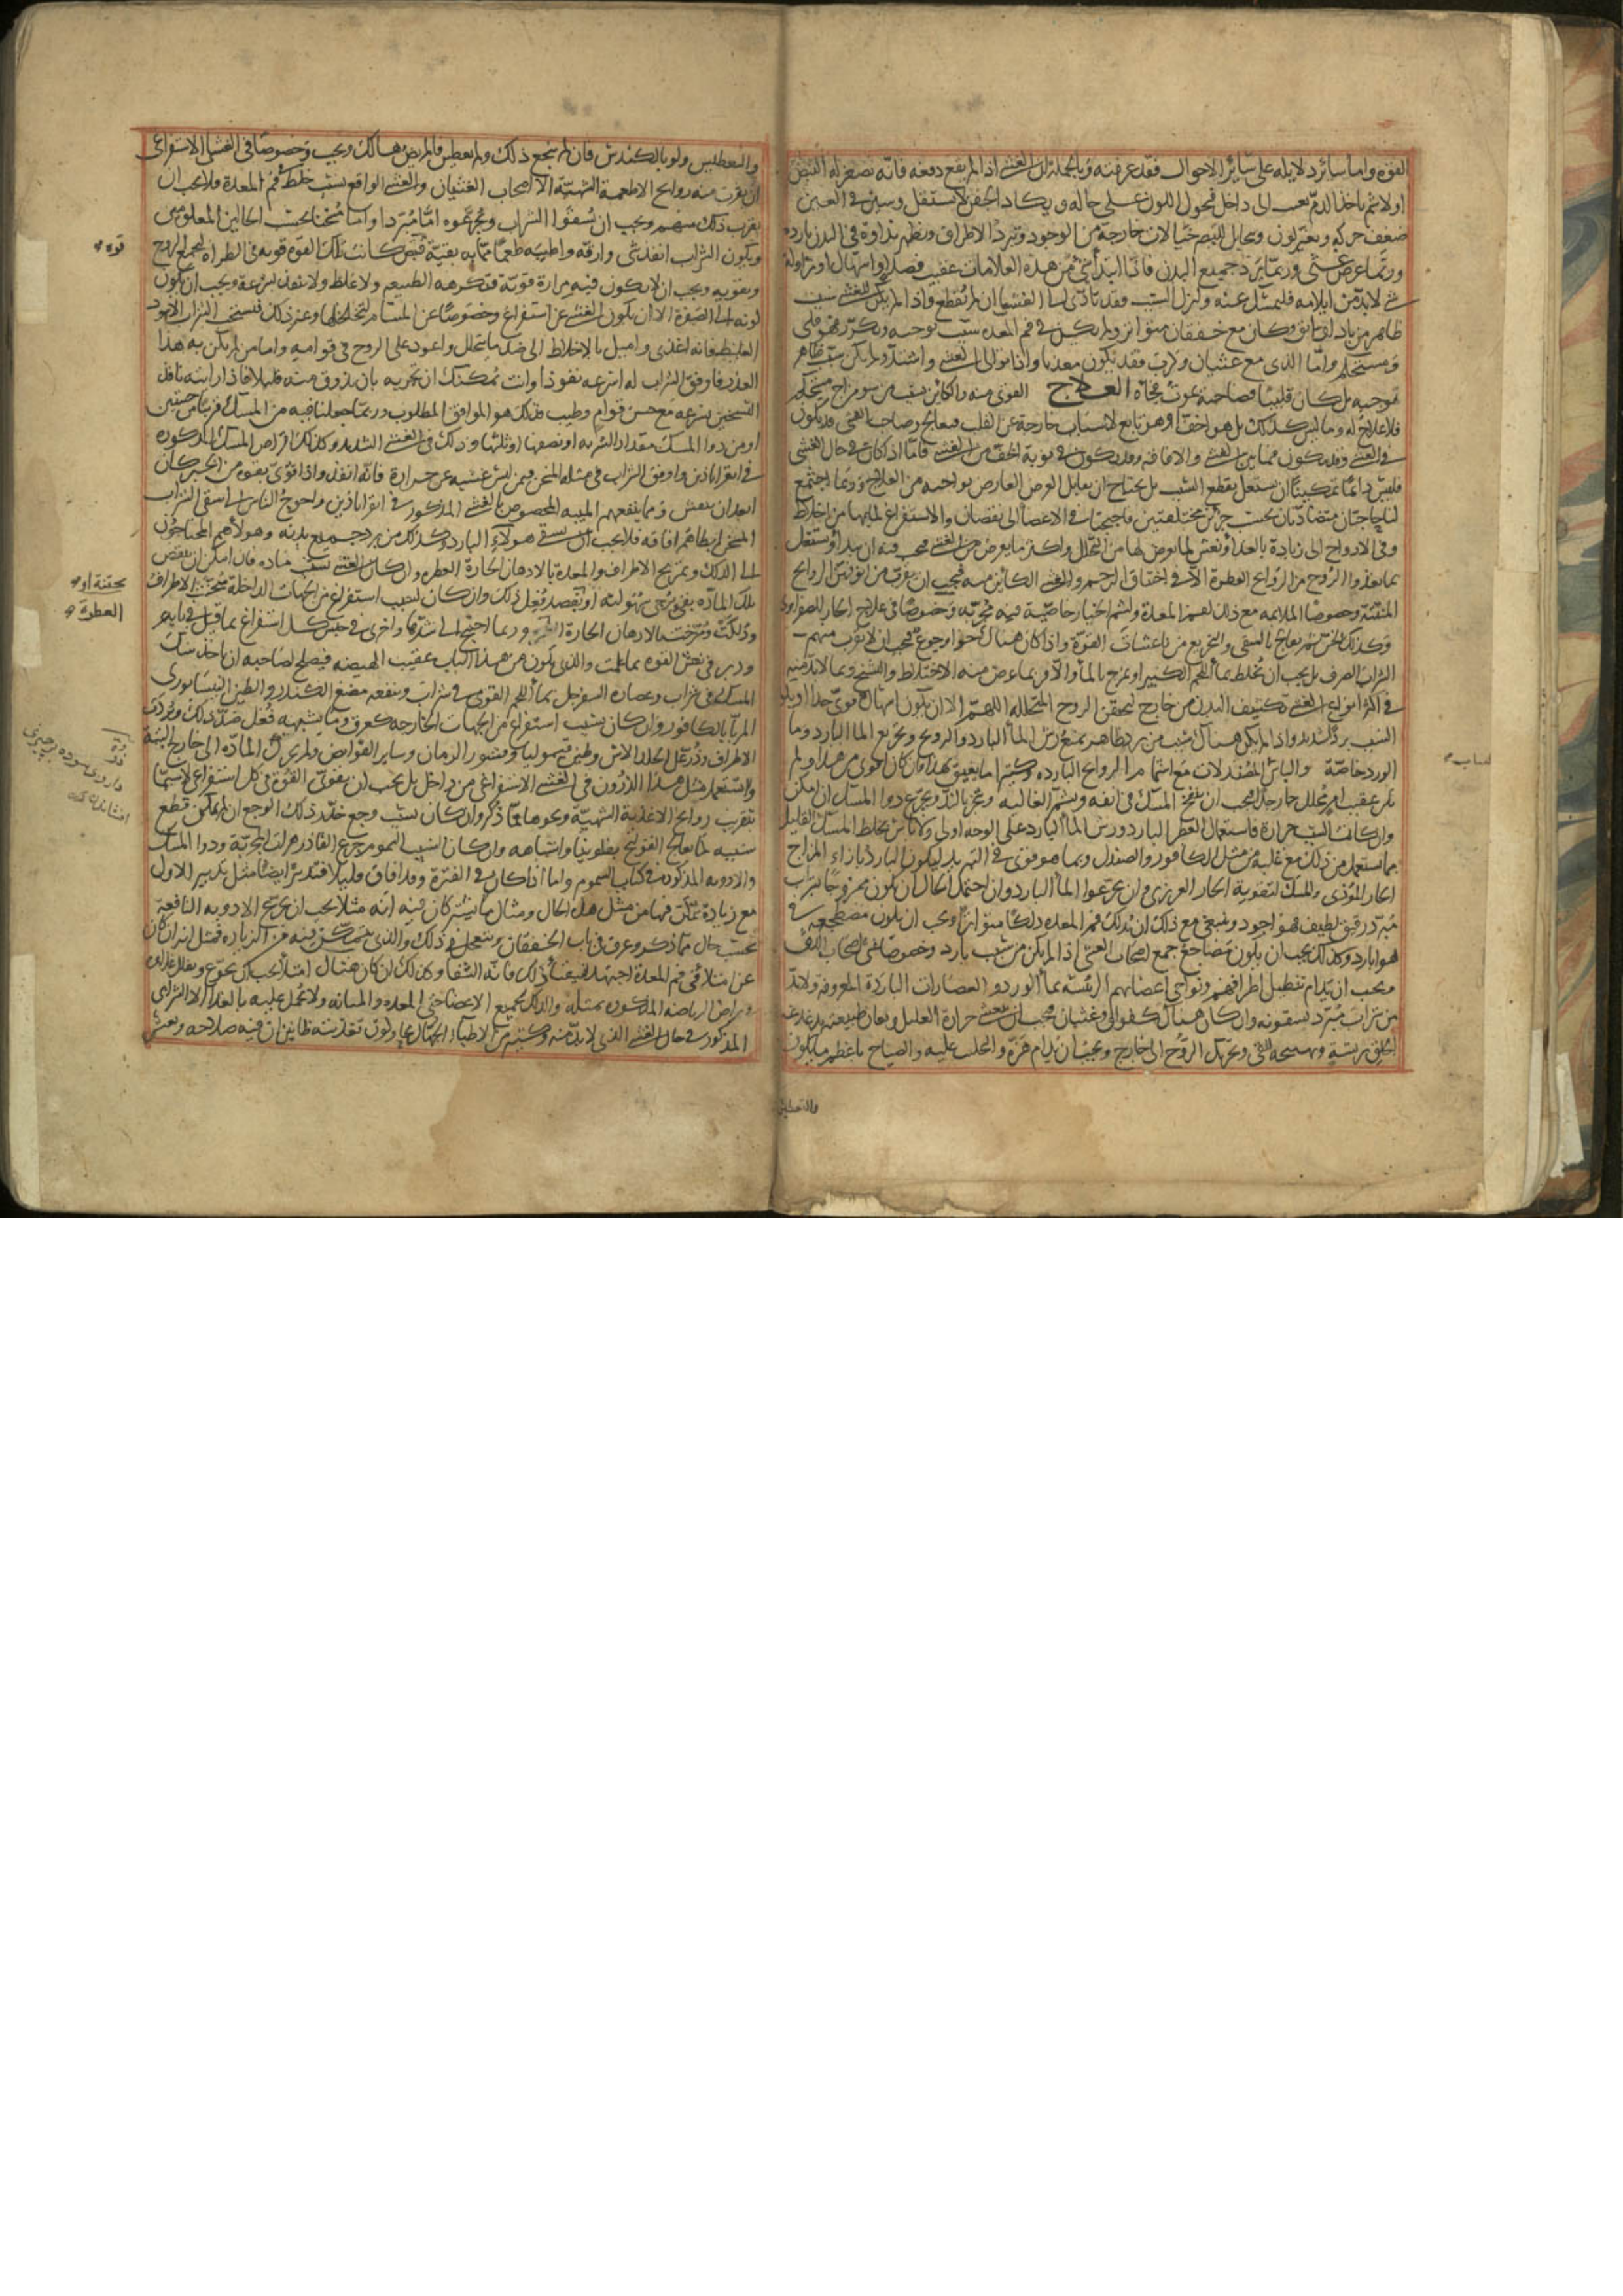 القوة واما سائر دلايله على سائر الاحوال فقد عرفته وبالجملة فان الغشى اذا لم يقع دفعة فانه يصغر له النبض
اولا ثم ياخذ الدم يغيب الى داخل فيحول اللون عن حاله ويكاد الجفن لا يستقل ويبين فى العين
ضعف حركة وتغير لون ويتخايل للبصر خيالات خارجة من الوجود وتبرد الاطراف ويظهر نداوة فى البدن باردة
وربما عرض غشى وربما برد جميع البدن فاذا ابتدأ شئ من هذه العلامات عقيب فصد او اسهال او مزاولة
شئ لا بد من ايلامه فليمسك عنه وليزل السبب فقد تأدى الى الغشى ان لم يقطع واذا لم يكن للغشى سبب
ظاهر من باد او سابق وكان مع خفقان متواتر ولم يكن فى فم المعدة سبب يوجبه وتكرر فهو قلبى
ومستحكم واما الذى مع غشيان وكرب فقد يكون معديا واذا توالى الغشى واشتد ولم يكن سبب ظاهر
يوجبه بل كان قلبيا فصاحبه يموت فجأة العلاج القوى منه والكائن بسبب سوء مزاج مستحكم
فلا علاج له وما ليس كذلك بل هو اخف او هو تابع لاسباب خارجة عن القلب فيعالج وصاحب الغشى قد يكون
فى الغشى وقد يكون فيما بين الغشى والافاقة وقد يكون فى نوبة الخف من الغشى فاما اذا كان فى حال الغشى
فليس دائما يمكننا ان نشتغل بقطع السبب بل نحتاج ان نقابل العرض العارض بواجبه من العلاج وربما اجتمع
لنا حاجتان متضادتان بحسب جزئين مختلفين فاحتجنا فى الاعضاء الى نقصان والاستفراغ لما بها من اخلاط
وفى الارواح الى زيادة بالغذاء ونعش لما يعرض لها من التحلل واكثر ما يعرض من الغشى فيجب فيه ان يبدأ ويشتغل
بما يغذو الروح من الروايح العطرة الا فى اختناق الرحم والغشى الكائن منه فيجب ان يقرب من انوفهن الروايح
المنتنة وخصوصا الملايمة مع ذلك لفم المعدة ولشم الخيار خاصية فيه مجربة وخصوصا فى علاج الحار الصفراوى
وكذلك الخس ثم يعالج بالسقى والتجريع من ناعشات القوة واذا كان هناك خوا وجوع فيجب ان لا يقرب منهم
الشراب الصرف بل يجب ان يخلط بماء اللحم الكثير او يمزج بالماء والا فربما عرض منه الاختلاط والتشنج ومما لا بد منه
فى اكثر انواع الغشى تكثيف البدن من خارج لتحقن الروح المتحللة اللهم الا ان يكون اسهال قوى جدا او يكون
السبب برد شديد واذا لم يكن هناك سبب من برد ظاهر يمنع رش الماء البارد والترويح وتجريع الماء البارد وماء
الورد خاصة والباس المصندلات مع اشتمام الروايح الباردة وكثيرا ما يفيق بهذا فان كان اقوى من هذا ولم
يكن عقيب امر محلل حار جدا فيجب ان ينفخ المسك فى انفه ويشمم الغالية ويبخر بالند ويجرع دواء المسك ان امكن
وان كانت السبب حرارة فاستعمال العطر البارد ورش الماء البارد على الوجه اولى ولا باس بخلط المسك القليل
بما يستعمل من ذلك مع غلبة من مثل الكافور والصندل وبما هو فوقه فى التبريد ليكون البارد بازاء المزاج
الحار المؤذى والمسك لتقوية الحار الغريزى وان يجرعوا الماء البارد وان احتمل الحال ان يكون ممزوجا بشراب
مبرد رقيق لطيف فهو اجود وينبغى مع ذلك ان يدلك فم المعدة دلكا متواترا ويجب ان يكون مضطجعه فى
هواء بارد وكذلك يجب ان يكون مضاجع جميع اصحاب الغشى اذا لم يكن من سبب بارد وخصوصا غشى اصحاب الدق
ويجب ان يدام تنطيل اطرافهم ونواحى اعضائهم الرئيسة بماء الورد والعصارات الباردة المعروفة ولا بد
من شراب مبرد يسقونه وان كان هناك كفواق وغثيان فيجب ان تنعش حرارة العليل وتعان طبيعته بدغدغة
الحلق بريشة وتهييجه للقئ وتحريك الروح الى خارج ويجب ان يدام هزه والجلب عليه والصياح باعظم ما يكون
والتعطيس
والتعطيس ولو بالكندش فان لم ينجع ذلك ولم يعطس فالمريض هالك ويجب وخصوصا فى الغشى الاستفراغى
ان يقرب منه روايح الاطعمة الشهية الا اصحاب الغثيان والغشى الواقع بسبب خلط فى فم المعدة فلا يجب ان
يقرب ذلك منهم ويجب ان يسقوا الشراب ويجرعوه اما مبردا واما مسخنا بحسب الحالين المعلومين
ويكون الشراب انفذ شئ وارقه واطيبه طعما مما به بقية قبض كانت تلك القوة قوية فى الطراءة ليجمع الروح
ويقويه ويجب ان لا يكون فيه مرارة قوية فتكرهه الطبيعة ولا غلظ ولا ينفذ بسرعة ويجب ان يكون
لونه الى الصفرة الا ان يكون الغشى عن استفراغ وخصوصا عن المسام لتخلخلها وغير ذلك فيستحب الشراب الاسود
الغليظ فانه اغذى واميل بالاخلاط الى ضد ما يتحلل واعود على الروح فى قوامه واما من لم يكن به هذا
العذر فاوفق الشراب له اسرعه نفوذا وانت يمكنك ان تجربه بان تذوق منه قليلا فاذا رايته نافذ
التسخين بسرعة مع حسن قوام وطيب فذلك هو الموافق المطلوب وربما جعلنا فيه من المسك قريبا من حبتين
او من دواء المسك مقدار الشربة او نصفها او ثلثها وذلك فى الغشى الشديد وكذلك اقراص المسك المذكورة
فى اقراباذين واوفق الشراب فى مثله المسخن فيمن ليس غشيه عن حرارة فانه انفذ واذا قوى بقوة من الخبز كان
ابعد ان ينعش ومما ينفعهم الميبه المخصوص بالغشى المذكور فى اقراباذين واحوج الناس الى سقى الشراب
المسخن ابطاهم افاقة فلا يجب ان يسقى هولاء البارد وكذلك من برد جميع بدنه وهولاء هم المحتاجون
الى الدلك وتمريخ الاطراف والمعدة بالادهان الحارة العطرة وان كان الغشى بسبب مادة فان امكن ان ينقص
تلك المادة بقئ يرجى سهولته او بفصد فعل ذلك وان كان بسبب استفراغ من الجهات الداخلة سخنت الاطراف
ودلكت ومرخت بالادهان الحارة وربما احتيج الى شدها واخرى فى حبس كل استفراغ بما قيل فى بابه
ودبر فى نعش القوة بما علمت والذى يكون من هذا الباب عقيب الهيضة فيصلح لصاحبه ان ياخذ سك
المسك فى شراب وعصارة السفرجل بماء اللحم القوى فى شراب وينفعه مضغ الكندر والطين النيسابورى
المربا بالكافور وان كان بسبب استفراغ من الجهات الخارجة كعرق وما يشبهه فعل ضد ذلك وبردت
الاطراف وذر على الجلد الاس وطين قيموليا وقشور الرمان وساير القوابض ولم يحرك المادة الى خارج البتة
واستعمل مثل هذا الذرور فى الغشى الاستفراغى من داخل بل يجب ان يقوى القوة فى كل استفراغ لا سيما
بتقريب روايح الاغذية الشهية ونحوها مما ذكر وان كان بسبب وجع خدر ذلك الوجع ان لم يمكن قطع
سببه كما يعالج القولنج بفلونيا واشباهه وان كان السبب السموم جرع الفادزهرات المجربة ودواء المسك
والادوية المذكورة فى كتاب السموم واما اذا كان فى الفترة وقد افاق قليلا فتدبر ايضا مثل تدبير الاول
مع زيادة تمكن فيها من مثل هذه الحال ومثال ما يشترك كان فيه انه مثلا يجب ان يجرع الادوية النافعة
بحسب حال مما ذكر وعرف فى باب الخفقان ويتعجل فى ذلك والذى يتمكن فيه من الزيادة فمثل انه ان كان
عن امتلاء فى فم المعدة اجتهد لتنقية ذلك فانه الشفا وكذلك ان كان هناك امتلاء يجب ان يجوع ويقلل غذاؤه
ويراض الرياضة المذكورة بمثله والدلك لجميع الاعضاء حتى المعدة والمثانة ولا تحمل عليه بالغذاء الا الشراب
المذكور فى حال الغشى الذى لا بد منه وكثير من الاطباء الجهال يحاولون تغذيته ظانين ان فيه صلاحه ونعش
قوة
بحقنة او
العطرة